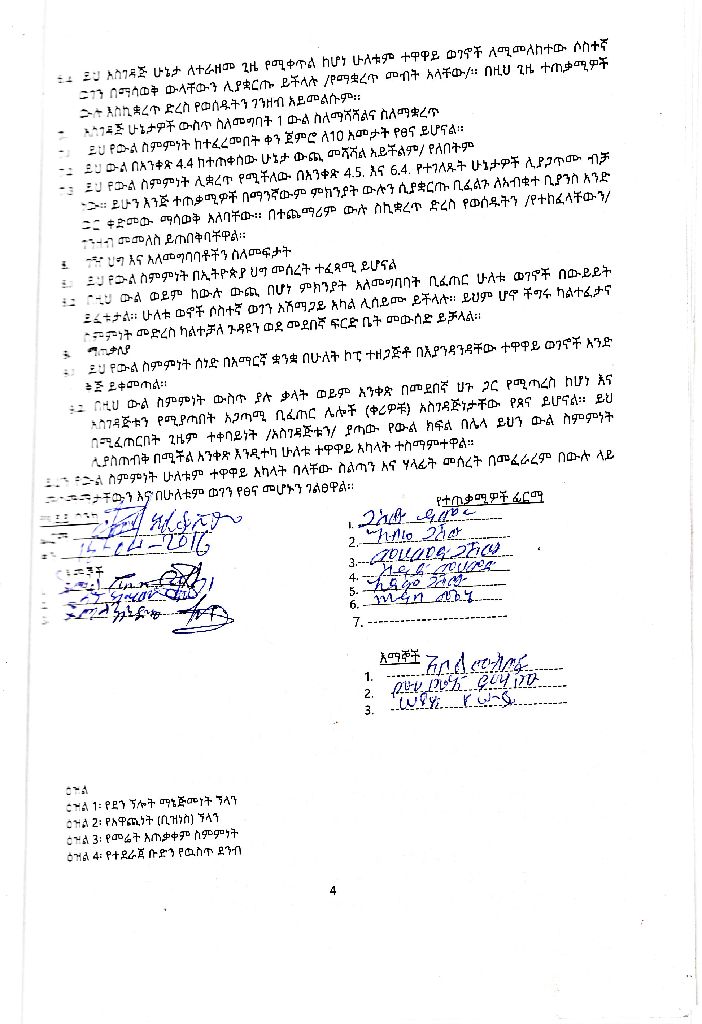 6.4 ይህ አስገዳጅ ሁኔታ ለተራዘመ ጊዜ የሚቀጥል ከሆነ ሁለቱም ተዋዋይ ወገኖች ለሚመለከተው ሶስተኛ
ወገን በማሳወቅ ውላቸውን ሊያቋርጡ ይችላሉ /የማቋረጥ መብት አላቸው/። በዚህ ጊዜ ተጠቃሚዎች
ውሉ እስኪቋረጥ ድረስ የወሰዱትን ገንዘብ አይመልሱም።
7. አስገዳጅ ሁኔታዎች ውስጥ ስለመግባት 1 ውል ስለማሻሻልና ስለማቋረጥ
7.1 ይህ የውል ስምምነት ከተፈረመበት ቀን ጀምሮ ለ10 አመታት የፀና ይሆናል።
7.2 ይህ ውል በአንቀጽ 4.4 ከተጠቀሰው ሁኔታ ውጪ መሻሻል አይችልም/ የለበትም
7.3 ይህ የውል ስምምነት ሊቋረጥ የሚችለው በአንቀጽ 4.5. እና 6.4. የተገለጹት ሁኔታዎች ሊያጋጥሙ ብቻ
ነው። ይሁን እንጅ ተጠቃሚዎች በማንኛውም ምክንያት ውሉን ሲያቋርጡ ቢፈልጉ ለአብቁተ ቢያንስ አንድ
ወር ቀድመው ማሳወቅ አለባቸው። በተጨማሪም ውሉ ስኪቋረጥ ድረስ የወሰዱትን /የተከፈላቸውን/
ገንዘብ መመለስ ይጠበቅባቸዋል።
8. ገዥ ህግ እና አለመግባባቶችን ስለመፍታት
8.1 ይህ የውል ስምምነት በኢትዮጵያ ህግ መሰረት ተፈጻሚ ይሆናል
8.2 በዚህ ውል ወይም ከውሉ ውጪ በሆነ ምክንያት አለመግባባት ቢፈጠር ሁለቱ ወገኖች በውይይት
ይፈቱታል። ሁለቱ ወኖች ሶስተኛ ወገን አሸማጋይ አካል ሊሰይሙ ይችላሉ። ይህም ሆኖ ችግሩ ካልተፈታና
ስምምነት መድረስ ካልተቻለ ጉዳዩን ወደ መደበኛ ፍርድ ቤት መውሰድ ይቻላል።
9. ማጠቃለያ
9.1 ይህ የውል ስምምነት ሰነድ በአማርኛ ቋንቋ በሁለት ኮፒ ተዘጋጅቶ በእያንዳንዳቸው ተዋዋይ ወገኖች እንድ
ቅጅ ይቀመጣል።
9.2 በዚህ ውል ስምምነት ውስጥ ያሉ ቃላት ወይም አንቀጽ በመደበኛ ህጉ ጋር የሚጣረስ ከሆነ እና
አስገዳጅቱን የሚያጣበት አጋጣሚ ቢፈጠር ሌሎች (ቀሪዎቹ) አስገዳጅነታቸው የጸና ይሆናል። ይህ
በሚፈጠርበት ጊዜም ተቀባይነት /አስገዳጅቱን/ ያጣው የውል ክፍል በሌላ ይህን ውል ስምምነት
ሊያስጠብቅ በሚችል አንቀጽ እንዲተካ ሁለቱ ተዋዋይ አካላት ተስማምተዋል።
የውል ስምምነት ሁለቱም ተዋዋይ አካላት ባላቸው ስልጣን እና ሃላፊት መሰረት በመፈራረም በውሉ ላይ
እና በሁለቱም ወገን የፀና መሆኑን ገልፀዋል።
የተጠቃሚዎች ፊርማ
1.
2.
3.
4.
5.
6.
7.
2016
እማኞች
1.
2.
3.
ዕዝል
ዕዝል 1፡ የደን ኘሎት ማኔጅመነት ኘላን
ዕዝል 2፡ የአዋጪነት (ቢዝነስ) ኘላን
ዕዝል 3፡ የመሬት አጠቃቀም ስምምነት
ዕዝል 4፡ የተደራጀ ቡድን የዉስጥ ደንብ
4